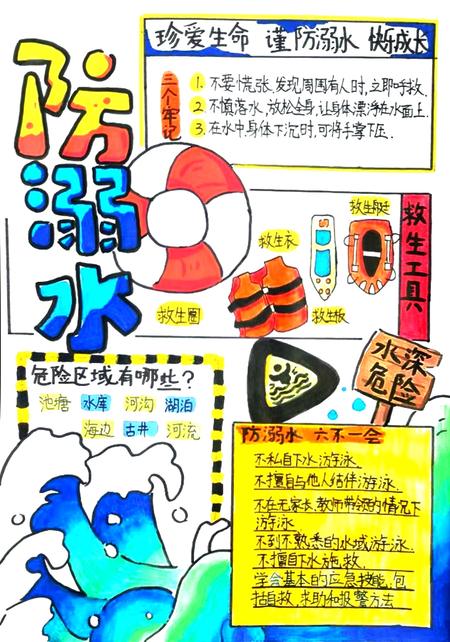 防溺水
珍爱生命 谨防溺水 快乐成长
三个牢记
1. 不要慌张,发现周围有人时,立即呼救.
2. 不慎落水,放松全身,让身体漂浮在水面上.
3. 在水中身体下沉时,可将手掌下压.
救生工具
救生艇
救生衣
救生圈
救生板
水深
危险
危险区域有哪些?
池塘 水库 河沟 湖泊
海边 古井 河流
防溺水 六不一会
不私自下水游泳.
不擅自与他人结伴游泳.
不在无家长、教师带领的情况下
游泳
不到不熟悉的水域游泳.
不擅自下水施救.
学会基本的应急技能,包
括自救、求助和报警方法